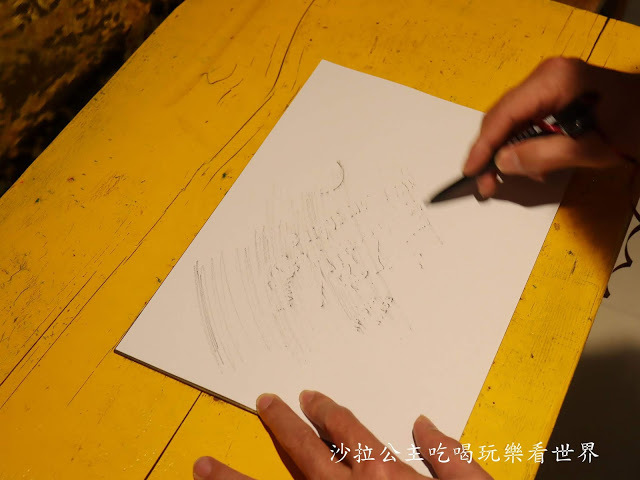 沙拉公主吃喝玩樂看世界